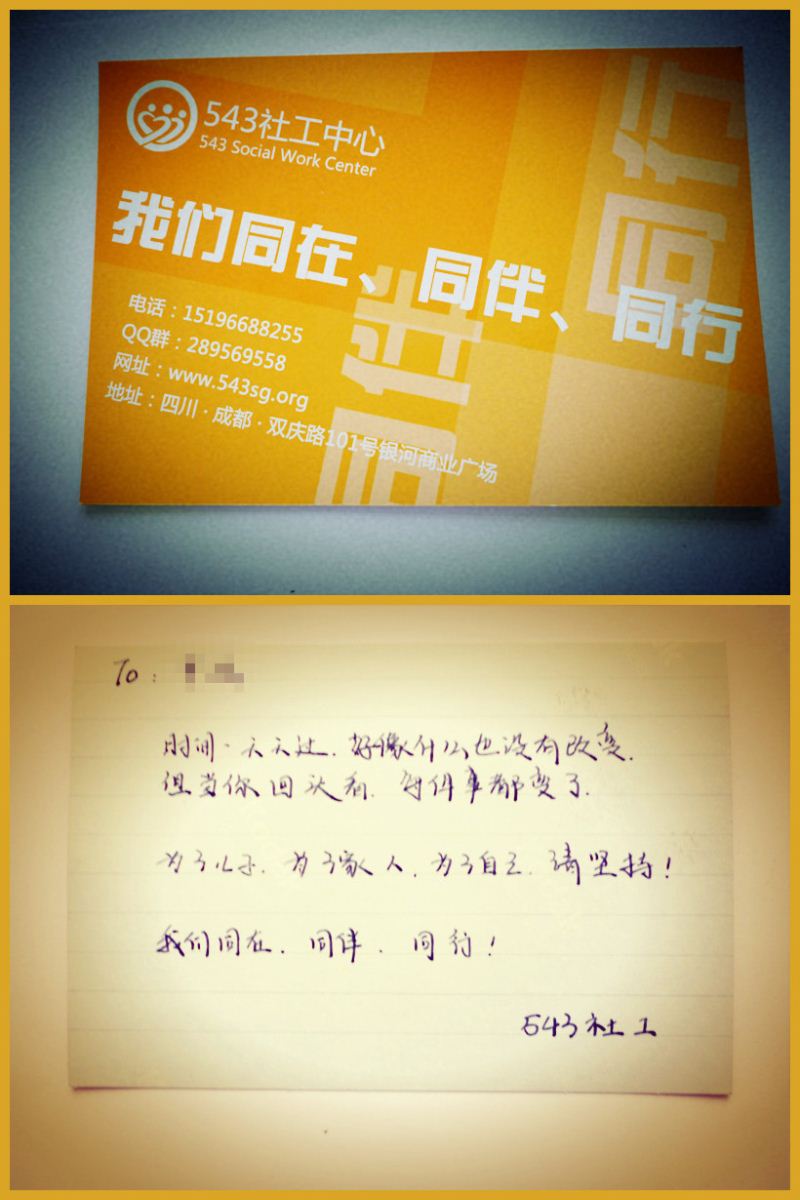 543社工中心
543 Social Work Center
我们同在、同伴、同行
电话：15196688255
QQ群：289569558
网址：www.543sg.org
地址：四川·成都·双庆路101号银河商业广场
同伴
同行
To：
时间一天天过，好像什么也没有改变，
但当你回头看，每件事都变了。
为了儿子，为了家人，为了自己，请坚持！
我们同在、同伴、同行！
543社工